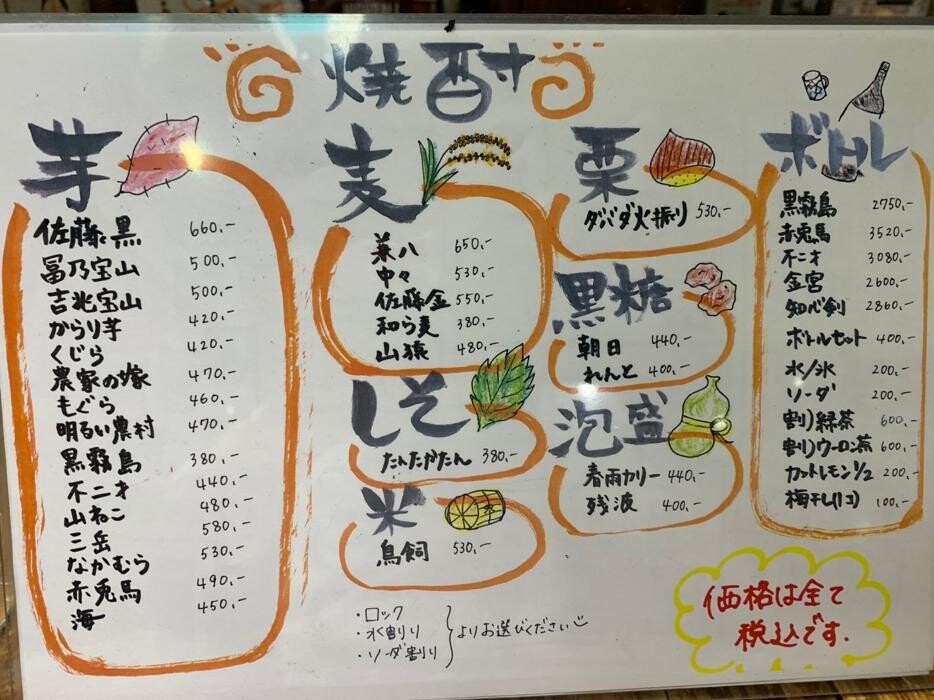 焼酎
芋
佐藤黒 660.-
冨乃宝山 500.-
吉兆宝山 500.-
からり芋 420.-
くじら 420.-
農家の嫁 470.-
もぐら 460.-
明るい農村 470.-
黒霧島 380.-
不二才 440.-
山ねこ 480.-
三岳 580.-
なかむら 530.-
赤兎馬 490.-
海 450.-
麦
兼八 650.-
中々 530.-
佐藤金 550.-
和ら麦 380.-
山猿 480.-
しそ
たんたかたん 380.-
米
鳥飼 530.-
・ロック
・水割り
・ソーダ割り
よりお選びください
栗
ダバダ火振り 530.-
黒糖
朝日 440.-
れんと 400.-
泡盛
春雨カリー 440.-
残波 400.-
ボトル
黒霧島 2750.-
赤兎馬 3520.-
不二才 3080.-
金宮 2600.-
知心剣 2860.-
ボトルセット 400.-
水/氷 200.-
ソーダ 200.-
割り緑茶 600.-
割りウーロン茶 600.-
カットレモン1/2 200.-
梅干し(1コ) 100.-
価格は全て
税込です.